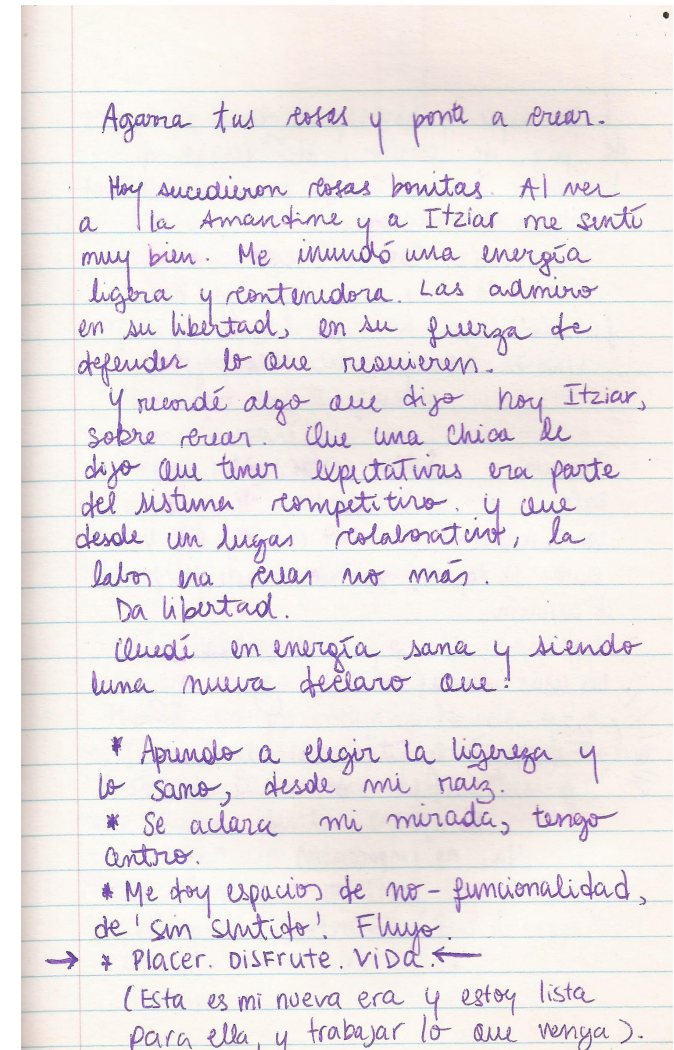 Agarra tus cosas y ponte a crear.
Hoy sucedieron cosas bonitas. Al ver
a la Amandine y a Itziar me sentí
muy bien. Me inundó una energía
ligera y contenedora. Las admiro
en su libertad, en su fuerza de
defender lo que requieren.
Y recordé algo que dijo hoy Itziar,
sobre crear. Que una chica le
dijo que tener expectativas era parte
del sistema competitivo. y que
desde un lugar colaborativo, la
labor era crear no más.
Da libertad.
Quedé en energía sana y siendo
luna nueva declaro que:
* Aprendo a elegir la ligereza y
lo sano, desde mi raíz.
* Se aclara mi mirada, tengo
centro.
* Me doy espacios de no-funcionalidad,
de 'sin sentido'. Fluyo.
→ * Placer. DISFrute. ViDa. ←
(Esta es mi nueva era y estoy lista
para ella, y trabajar lo que venga).